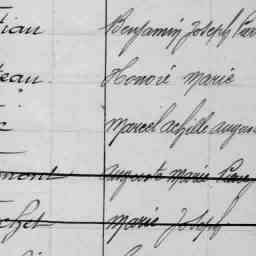 tian Benjamin Joseph
eau Honoré Marie
Marcel Achille
mont Auguste Marie
chet Marie Joseph